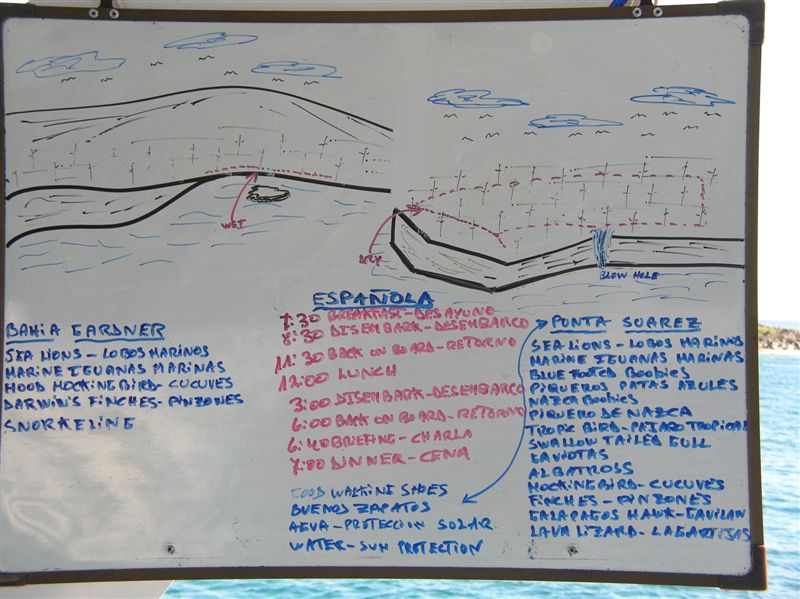 WET
DRY
BLOW HOLE
BAHIA GARDNER
SEA LIONS - LOBOS MARINOS
MARINE IGUANAS MARINAS
HOOD MOCKINGBIRD - CUCUVES
DARWIN'S FINCHES - PINZONES
SNORKELING
ESPAÑOLA
7:30 BREAKFAST - DESAYUNO
8:30 DISEMBARK - DESEMBARCO
11:30 BACK ON BOARD - RETORNO
12:00 LUNCH
3:00 DISEMBARK - DESEMBARCO
6:00 BACK ON BOARD - RETORNO
6:40 BRIEFING - CHARLA
7:00 DINNER - CENA
GOOD WALKING SHOES
BUENOS ZAPATOS
AGUA - PROTECCION SOLAR
WATER - SUN PROTECTION
PUNTA SUAREZ
SEA LIONS - LOBOS MARINOS
MARINE IGUANAS MARINAS
BLUE FOOTED BOOBIES
PIQUEROS PATAS AZULES
NAZCA BOOBIES
PIQUERO DE NAZCA
TROPIC BIRD - PAJARO TROPICAL
SWALLOW TAILED GULL
GAVIOTAS
ALBATROSS
MOCKINGBIRD - CUCUVES
FINCHES - PINZONES
GALAPAGOS HAWK - GAVILAN
LAVA LIZARD - LAGARTIJAS